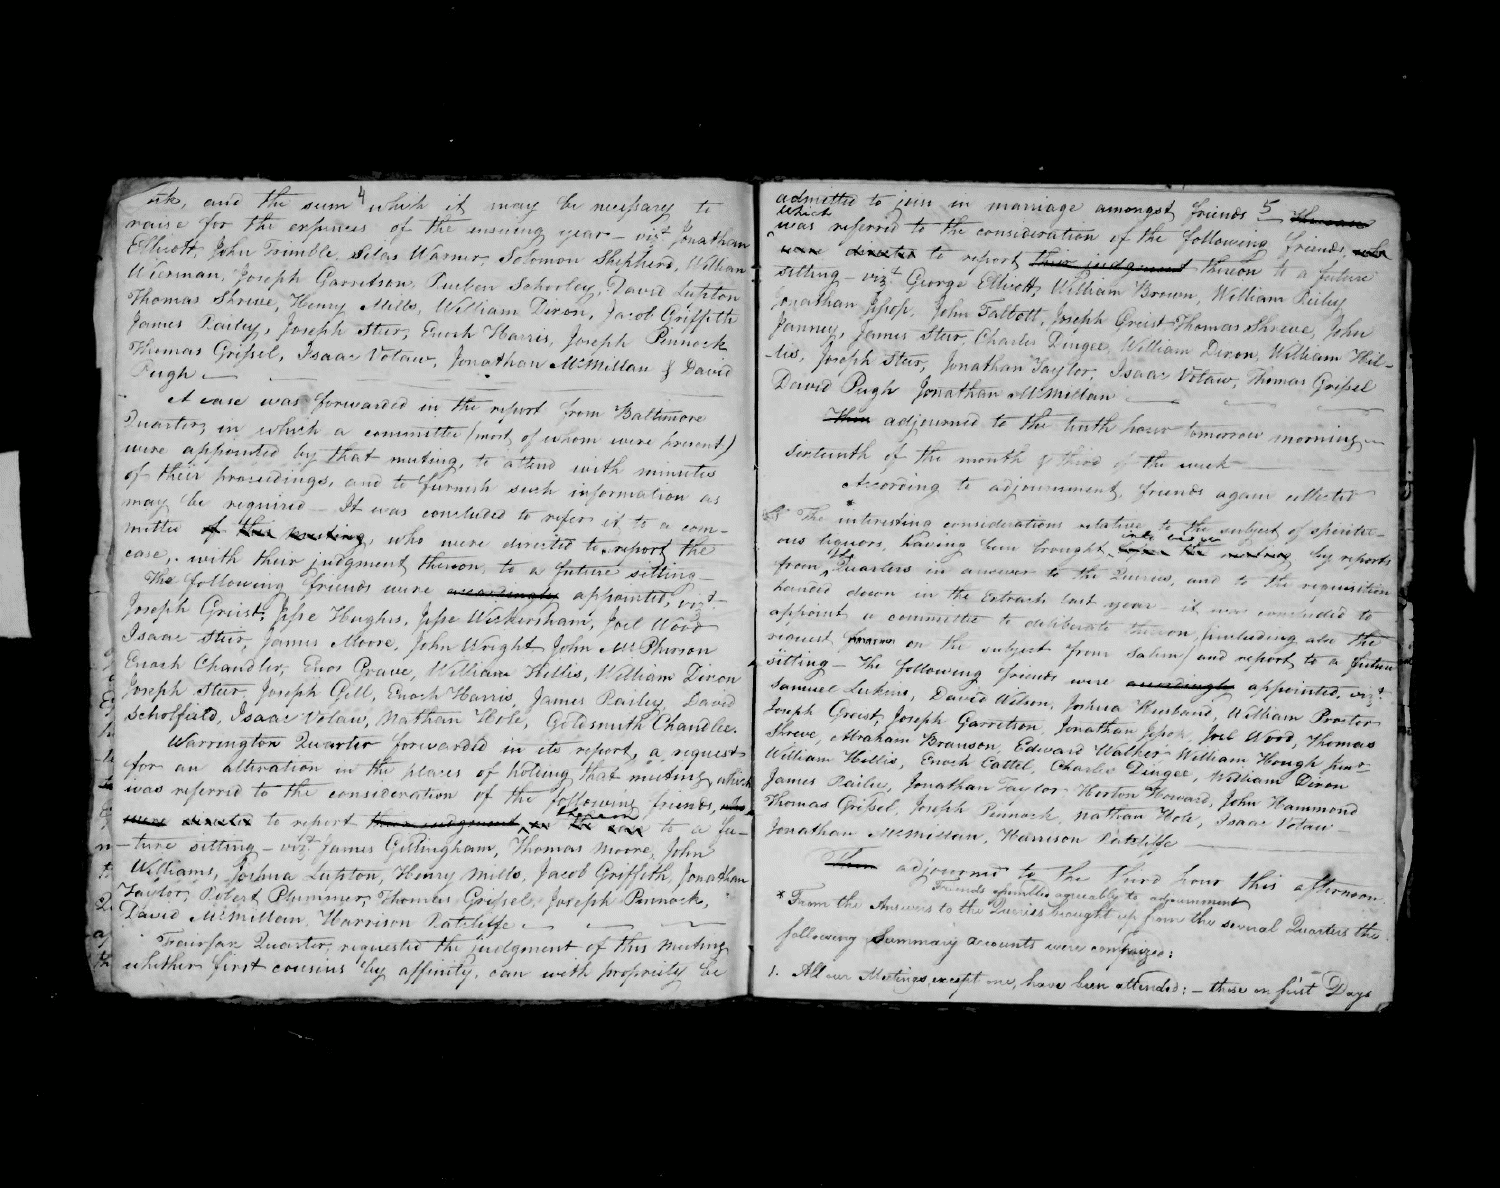 4
and the sum which it may be necessary to
raise for the expences of the ensuing year — vizt Jonathan
Ellicott, John Trimble, Silas Warner, Solomon Shepherd, William
Wierman, Joseph Garretson, Reuben Schooley, David Lupton
Thomas Shreve, Henry Mills, William Dixon, Jacob Griffith
James Raley, Joseph Steer, Enoch Harris, Joseph Pennock
Thomas Grissel, Isaac Votaw, Jonathan McMillan & David
Pugh —
A case was forwarded in the report from Baltimore
Quarter, in which a committee (most of whom were present)
were appointed by that meeting, to attend with minutes
of their proceedings, and to furnish such information as
may be required — It was concluded to refer it to a com-
mittee of this meeting, who were directed to report the
case, with their judgment thereon, to a future sitting —
The following friends were accordingly appointed, vizt —
Joseph Greist, Jesse Hughes, Jesse Wickersham, Joel Wood
Isaac Steer, James Moore, John Wright John McPherson
Enoch Chandler, Enos Grave, William Hillis, William Dixon
Joseph Steer, Joseph Gill, Enoch Harris, James Railey, David
Schoffield, Isaac Votaw, Nathan Hole, Goldsmith Chandlee.
Warrington Quarter forwarded in its report, a request
for an alteration in the places of holding that meeting, which
was referred to the consideration of the following friends, who
thereon
were directed to report their judgment to a fu-
-ture sitting — vizt James Gillingham, Thomas Moore, John
Williams, Joshua Lupton, Henry Mills, Jacob Griffith, Jonathan
Taylor, Robert Plummer, Thomas Grissel, Joseph Pennock,
David McMillan, Harrison Ratcliffe —
Fairfax Quarter, requested the judgment of this meeting
whether first cousins by affinity, can with propriety be
5
admitted to join in marriage amongst friends
which
was referred to the consideration of the following friends, who
were directed to report their judgment thereon to a future
sitting — vizt George Ellicott, William Brown, William Riley
Jonathan Jessop, John Talbott, Joseph Greist Thomas Shreve, John
Janney, James Steer, Charles Dingee, William Dixon, William Hil-
-lis, Joseph Steer, Jonathan Taylor, Isaac Votaw, Thomas Grissel
David Pugh Jonathan McMillan —
Then adjourned to the tenth hour tomorrow morning —
Sixteenth of the month & third of the week —
According to adjournment, friends again collected
The interesting considerations relative to the subject of spiritu-
into view
ous liquors, having been brought by reports
the
from Quarters in answer to the Queries, and to the requisition
handed down in the Extracts last year — it was concluded to
appoint a committee to deliberate thereon, (including also the
request on the subject from Salem) and report to a future
sitting — The following friends were accordingly appointed, vizt
Samuel Lukens, David Wilson, Joshua Husband, William Procter
Joseph Greist, Joseph Garretson, Jonathan Jessop, Joel Wood, Thomas
Shreve, Abraham Branson, Edward Walker William Hough junr
William Hillis, Enoch Cattel, Charles Dingee, William Dixon
James Railey, Jonathan Taylor Horton Howard, John Hammond
Thomas Grissel, Joseph Pennock, Nathan Hole, Isaac Votaw —
Jonathan McMillan, Harrison Ratcliffe —
Then adjourned to the third hour this afternoon.
Friends assembled agreeably to adjournment
* From the Answers to the Queries brought up from the several Quarters the
following Summary accounts were comprized:
1. All our Meetings, except one, have been attended; — those on first Days